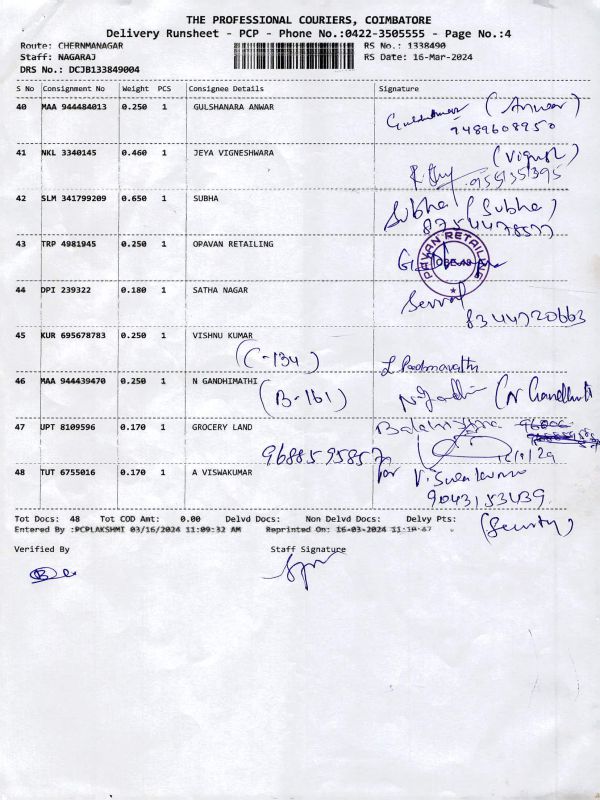 THE PROFESSIONAL COURIERS, COIMBATORE
Delivery Runsheet - PCP - Phone No.:0422-3505555 - Page No.:4
Route: CHERNMANAGAR RS No.: 1338490
Staff: NAGARAJ RS Date: 16-Mar-2024
DRS No.: DCJB133849004
S No Consignment No Weight PCS Consignee Details Signature
40 MAA 944484013 0.250 1 GULSHANARA ANWAR
(Anwar)
9489608950
41 NKL 3340145 0.460 1 JEYA VIGNESHWARA
42 SLM 341799209 0.650 1 SUBHA Subha (Subha)
43 TRP 4981945 0.250 1 OPAVAN RETAILING
44 DPI 239322 0.180 1 SATHA NAGAR
8344720663
45 KUR 695678783 0.250 1 VISHNU KUMAR
(C-134) L Padmavathi
46 MAA 944439470 0.250 1 N GANDHIMATHI
(B-161)
47 UPT 8109596 0.170 1 GROCERY LAND
9688595857
48 TUT 6755016 0.170 1 A VISWAKUMAR
9043153439
Tot Docs: 48 Tot COD Amt: 0.00 Delvd Docs: Non Delvd Docs: Delvy Pts:
(Security)
Entered By :PCPLAKSHMI 03/16/2024 11:09:32 AM Reprinted On: 16-03-2024
Verified By Staff Signature